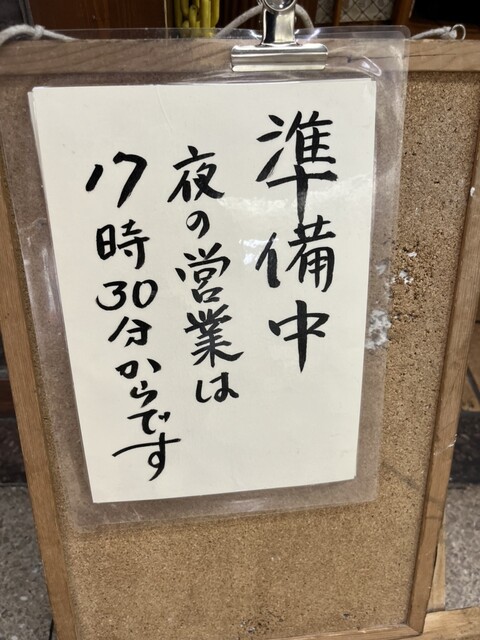 準備中
夜の営業は
17時30分からです